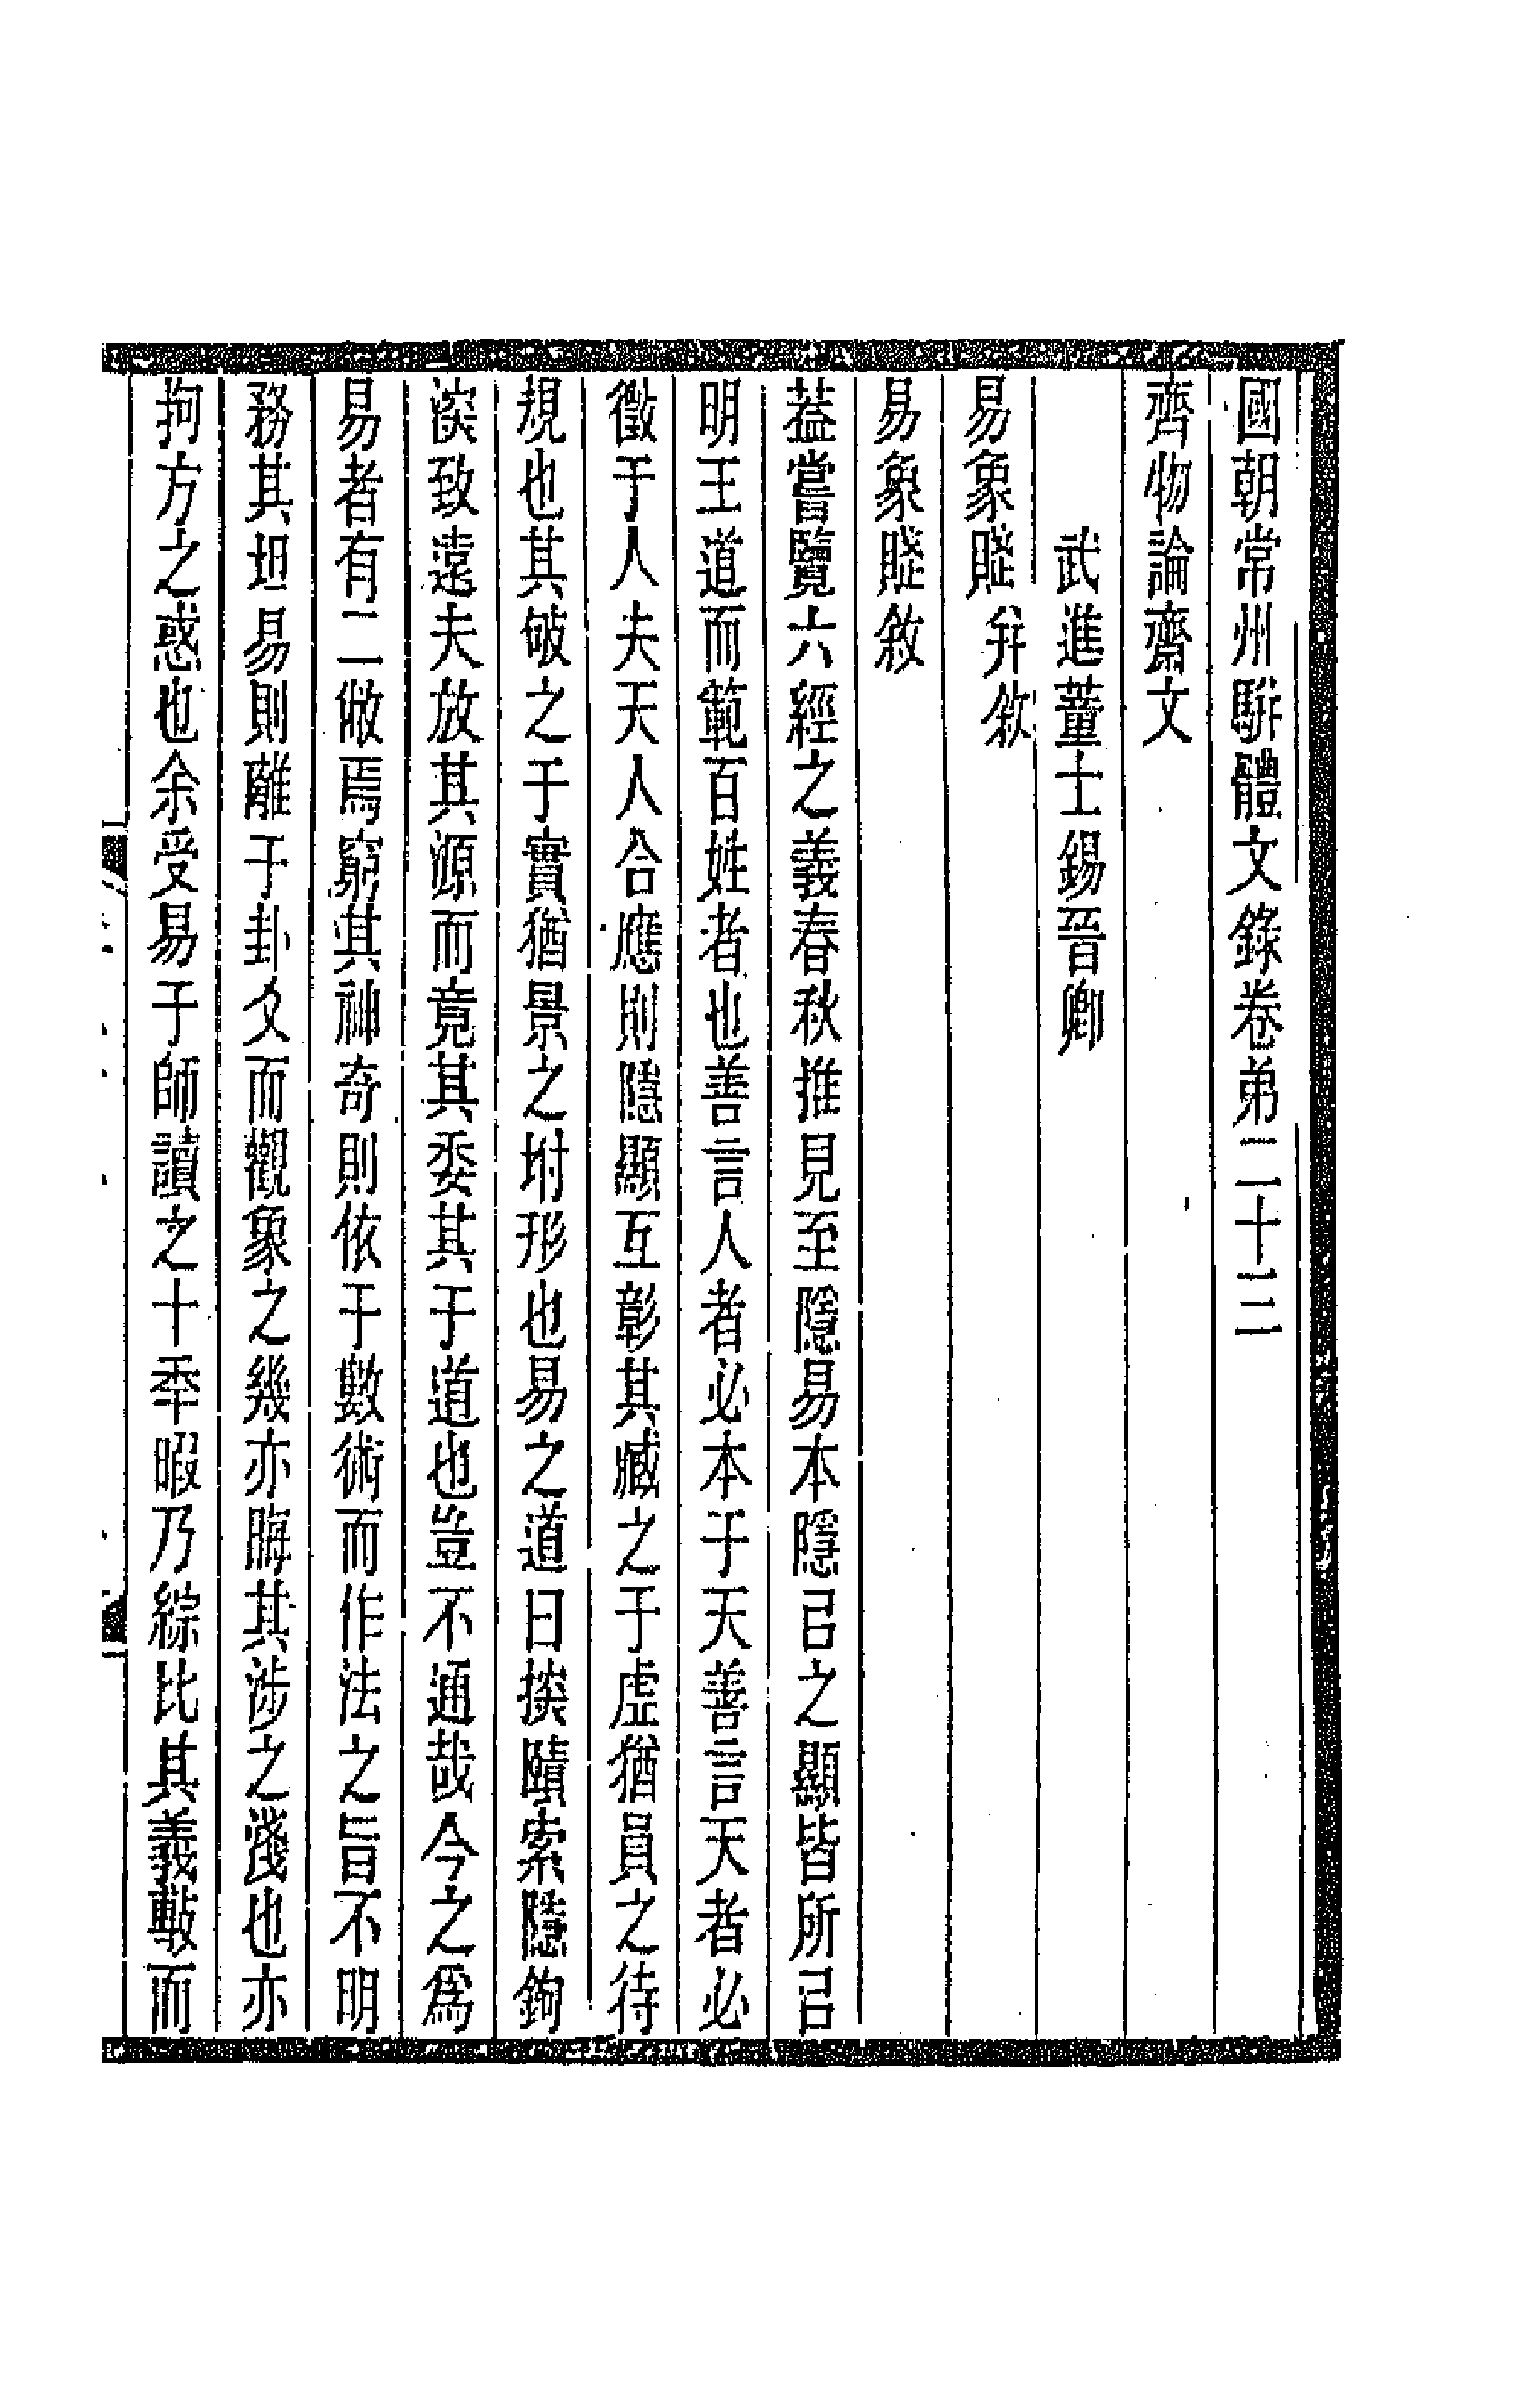 國朝常州駢體文錄卷弟二十三
齊物論齋文
武進董士錫晉卿
易象賦并敘
易象賦敘
葢嘗覽六經之義春秋推見至隱易本隱㠯之顯皆所㠯
明王道而範百姓者也善言人者必本于天善言天者必
徵于人夫天人合應則隱顯互彰其臧之于虛猶員之待
規也其破之于實猶景之坿形也易之道曰探賾索隱鉤
深致遠夫放其源而竟其委其于道也豈不通哉今之爲
易者有二敝焉窮其神奇則依于數術而作法之旨不明
務其坦易則離于卦爻而觀象之幾亦晦其涉之淺也亦
拘方之惑也余受易于師讀之十季暇乃綜比其義敷而